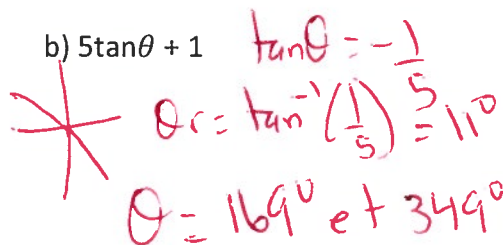 b) 5tanθ + 1 tanθ = -1/5
θr = tan⁻¹(1/5) = 11°
θ = 169° et 349°